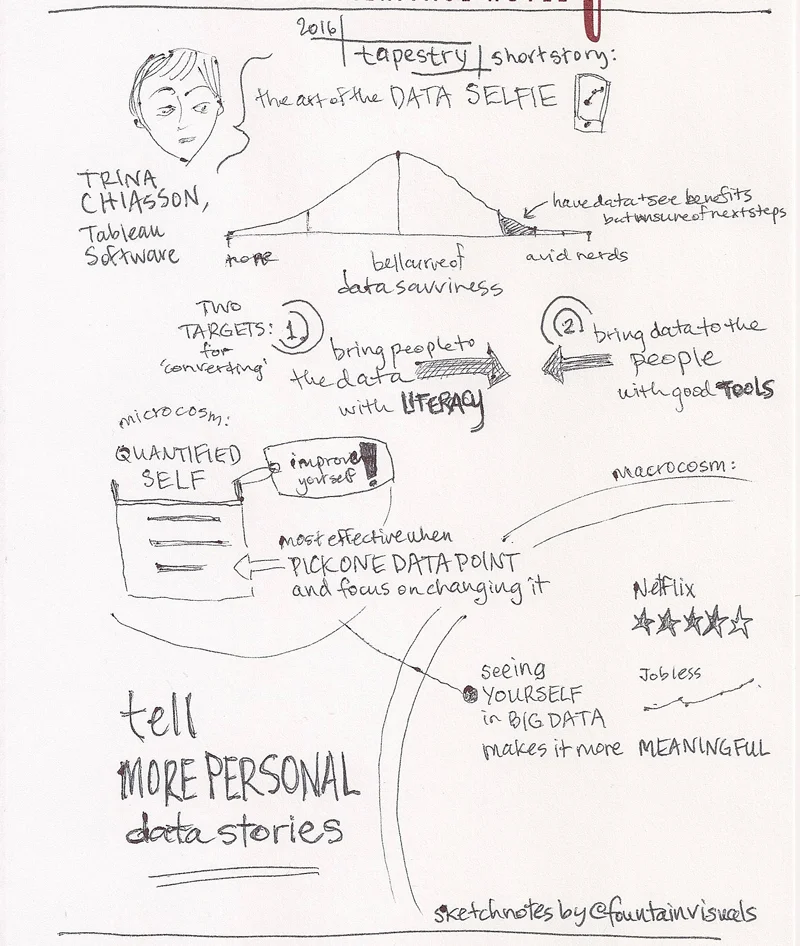 2016
tapestry short story:
the art of the DATA SELFIE
TRINA
CHIASSON,
Tableau
Software
have data + see benefits
but unsure of next steps
nope
bell curve of
data savviness
avid nerds
TWO
TARGETS:
for
'converting'
1.
bring people to
the data
with LITERACY
2
bring data to the
people
with good TOOLS
microcosm:
QUANTIFIED
SELF
improve
yourself!
most effective when
PICK ONE DATA POINT
and focus on changing it
macrocosm:
Netflix
Jobless
seeing
YOURSELF
in BIG DATA
makes it more MEANINGFUL
tell
MORE PERSONAL
data stories
sketchnotes by @fountainvisuals